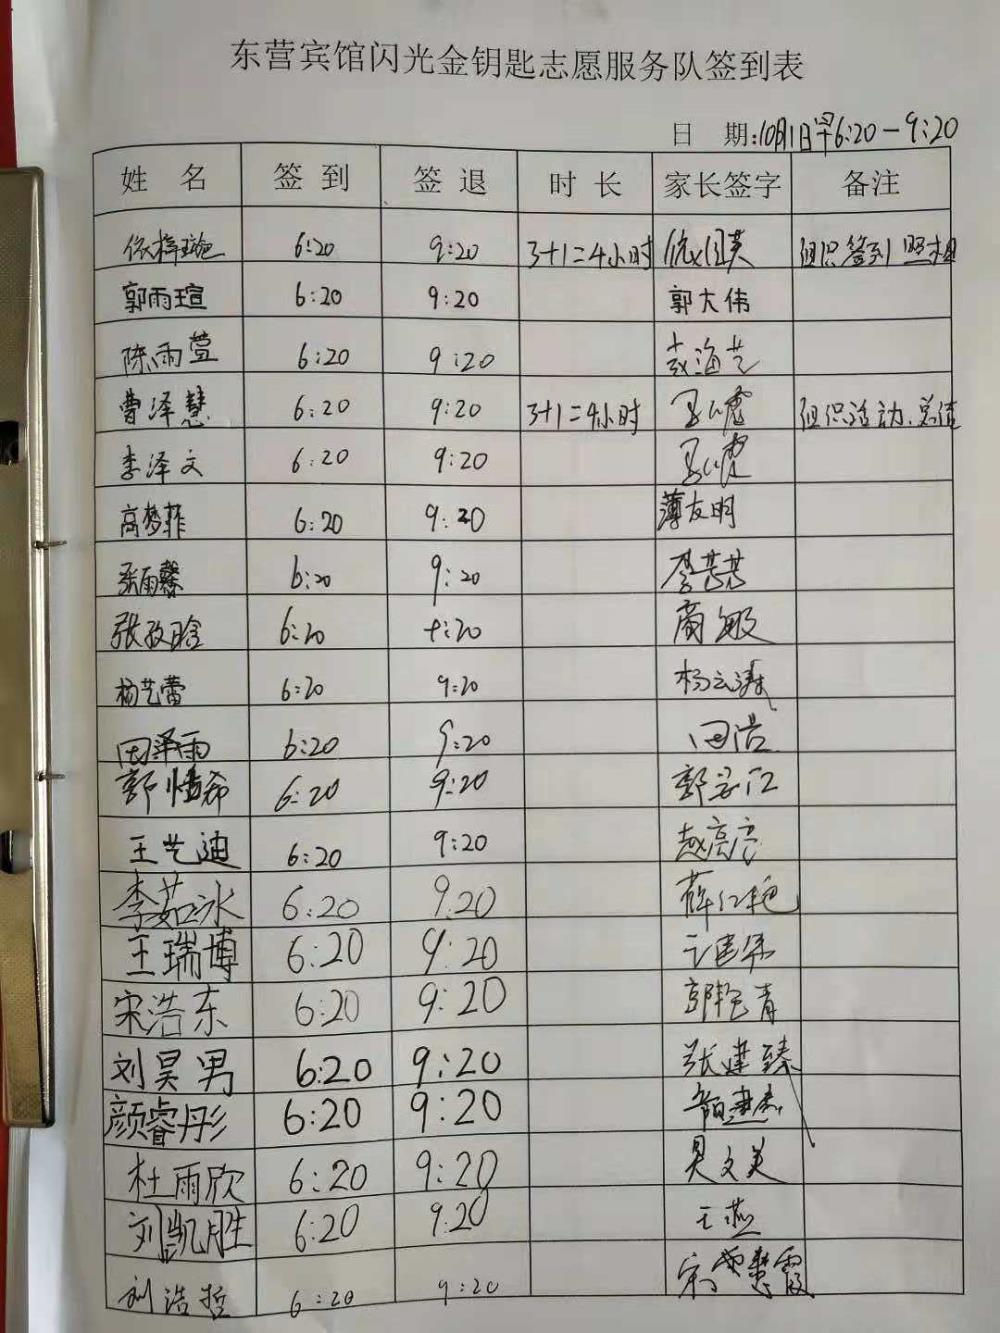 东营宾馆闪光金钥匙志愿服务队签到表
日 期:10月1日早6:20-9:20
姓 名 签 到 签 退 时 长 家长签字 备注
6:20 9:20 3+1=4小时 组织签到 照相
郭雨瑄 6:20 9:20 郭大伟
陈雨萱 6:20 9:20
曹泽慧 6:20 9:20 3+1=4小时 组织活动、总结
李泽文 6:20 9:20
高梦菲 6:20 9:20 薄友明
张雨馨 6:20 9:20
6:20 9:20 商敏
杨艺蕾 6:20 9:20
田泽雨 6:20 9:20 田浩
6:20 9:20
王艺迪 6:20 9:20 赵亮亮
李茹冰 6:20 9.20 薛红艳
王瑞博 6:20 9:20
宋浩东 6:20 9:20 郭艳青
刘昊男 6:20 9:20 张建臻
颜睿彤 6:20 9:20
杜雨欣 6:20 9:20 吴文美
刘凯胜 6:20 9.20 王燕
刘浩哲 6:20 9:20